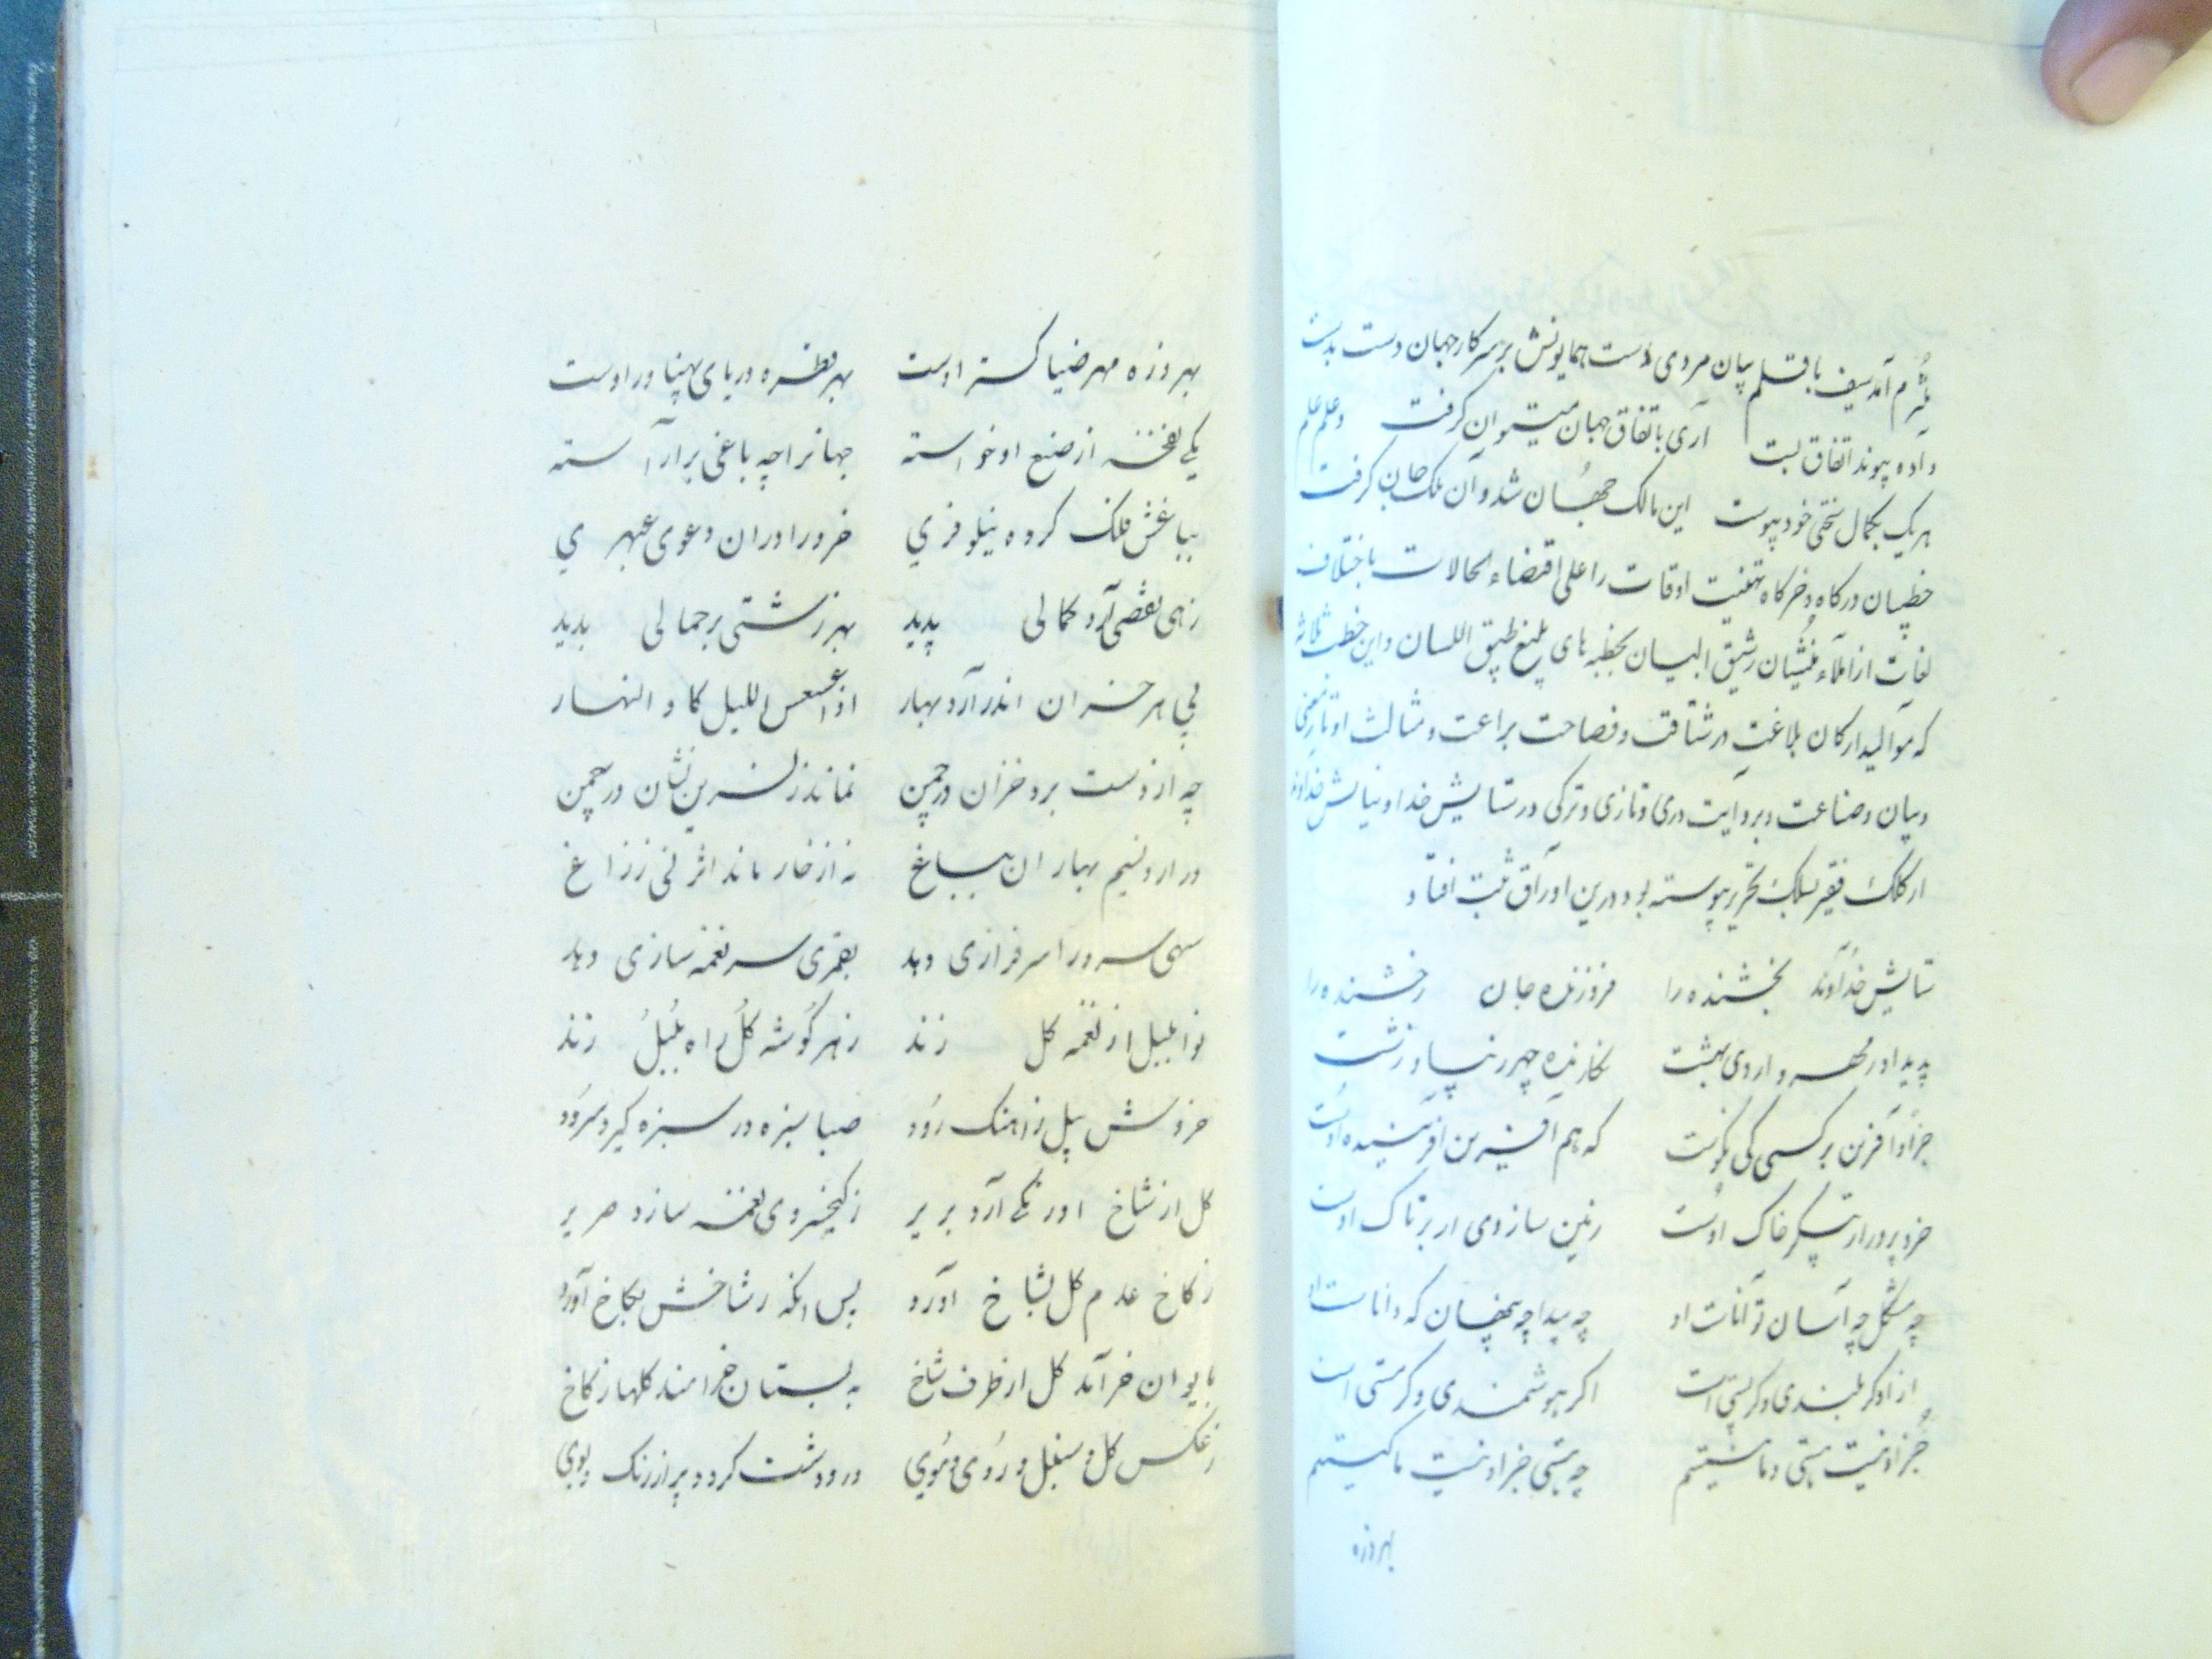 شرم آمد سیف با قلم پیان مردی دست همایونش بر سر کار جهان دست بدست
داده پیوند اتفاق بست آری باتفاق جهان میتوان کرفت و علم علم
هر یک بکمال سختی خود پیوست این مالک جهان شد و آن ملک جان کرفت
خطیبان درکاه و خرکاه تهنیت اوقات را علی اقتضاء الحالات باختلاف
لغات از املاء منشیان رشیق البیان بخطبه های بلیغ طلیق اللسان و این خطب ثلاثه
که موالید ارکان بلاغت و رشاقت و فصاحت براعت و مثالث اوتار معنی
و بیان و صناعت و بروایت دری و تازی و ترکی در ستایش خدا و نیایش خداوند
از کلک فقیر بسلک تحریر پیوسته بود درین اوراق ثبت افتاد
ستایش خداوند بخشنده را فروزنده جان رخشنده را
پدید اور مهر و اردی بهشت نکارنده چهر زیبا و زشت
جز او آفرین بر کسی کی نکوست که هم آفرین آفریننده اوست
خرد پرور از پیکر خاک اوست
چه مشکل چه آسان توانات او چه پیدا چه پنهان که دانات او
از او کر بلندی و کر پستی است اکر هوشمندی و کر مستی است
جز او نیست هستی و ما نیستیم چه هستی جز او نیست ما کیستیم
بهر ذره
بهر ذره مهر ضیا کستر اوست بهر قطره دریای پهناور اوست
یکی نفخه از صنع او خواسته جهانرا چه باغی برآراسته
بباغش فلک کرده نیلوفری خرور اندران دعوی عبهری
زهی نقص آرد کمالی پدید بهر زشتی بر جمالی بدید
پی هر خزان اندر آرد بهار اذا عسعس اللیل کاد النهار
چه از دست برد خزان در چمن نماند ز نسرین نشان در چمن
در ارد نسیم بهاران بباغ نه از خار ماند اثر نی ز زاغ
سهی سرو را سرفرازی دهد بقمری سر نغمه سازی دهد
نوا بلبل از نغمه کل زند ز هر کوشه کل راه بلبل زند
خروش پیل ز اهنک رود صبا سبزه در سبزه کیرد سرود
کل از شاخ اورنکی آرد بزیر ز کیخسروی نغمه سازد صریر
ز کاخ عدم کل بشاخ آورد پس انکه ز شاخش بکاخ آورد
بایوان خرامد کل از طرف شاخ به بستان خرامند کلها ز کاخ
ز عکس کل و سنبل و روی و موی در و دشت کردد پر از رنک و بوی